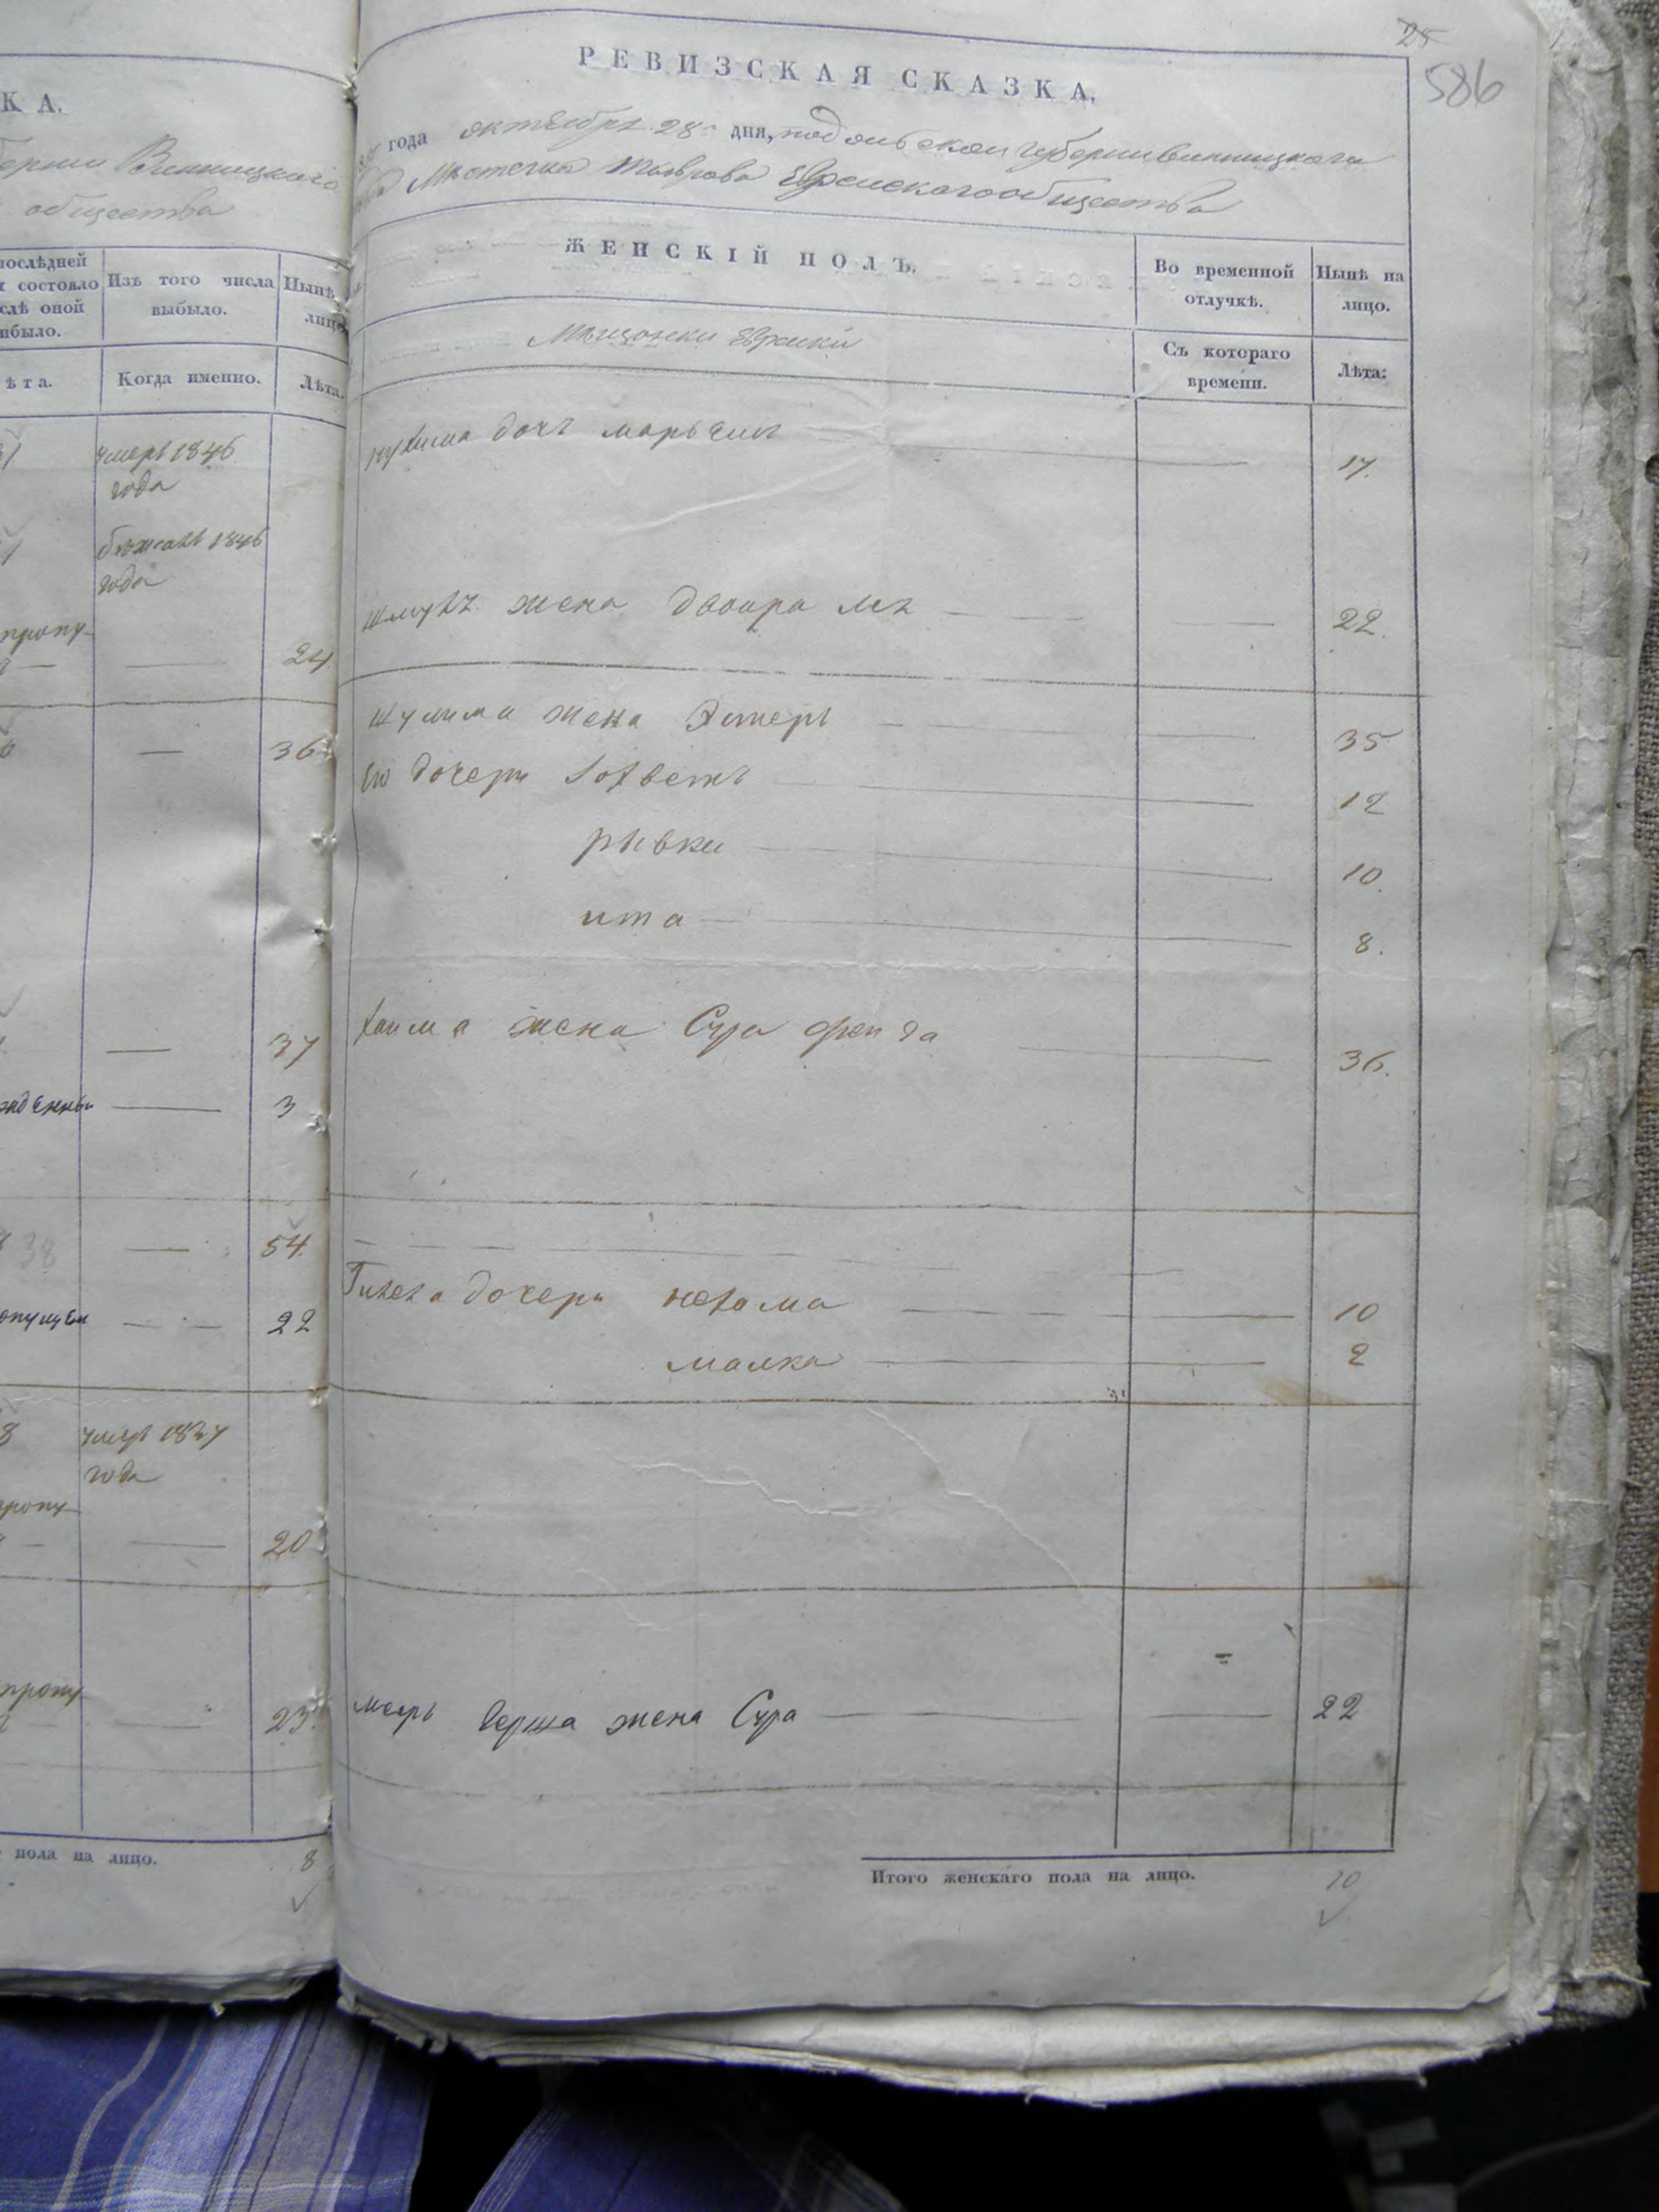 К А.
Винницкаго
общества
послѣдней
состояло
слѣ оной
ибыло.
Изъ того числа
выбыло.
Нынѣ
лицо
ѣта.
Когда именно.
Лѣта.
умеръ 1846
года
бѣжалъ 1846
года
пропу-
24
36
37
3
38
54
22
8
умеръ 1837
года
пропу-
20
пропу
23
пола на лицо.
8
25
586
РЕВИЗСКАЯ СКАЗКА.
года октября 28 дня, подольской губернии винницкаго
Мѣстечка Тыврова Еврейскаго общества
ЖЕНСКІЙ ПОЛЪ.
Во временной
отлучкѣ.
Нынѣ на
лицо.
Мѣщанки Еврейки
Съ котораго
времени.
Лѣта:
нухима дочь марьямъ 17.
жена двойра 22.
шулима жена Эстеръ 35
Его дочери 12
рывки 10.
ита 8.
хаима жена Сура фейга 36.
дочери нехама 10
малка 2
мееръ Герша жена Сура 22
Итого женскаго пола на лицо. 10